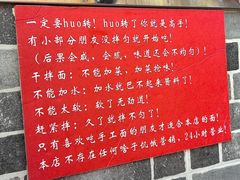 一定要huo转！huo转了你就是高手！
有小部分朋友没拌匀就开始吃！
（后果会咸，会燃，味道还会不均匀）！
干拌面：不能加菜，加菜抢味！
不能加水：加水就巴不起来酱料了！
不能太软：软了无劲道！
赶紧拌：久了就拌不匀了！
只有喜欢吃手工面的朋友才适合本店的面！
本店不存在任何啥子饥饿营销，24小时营业！